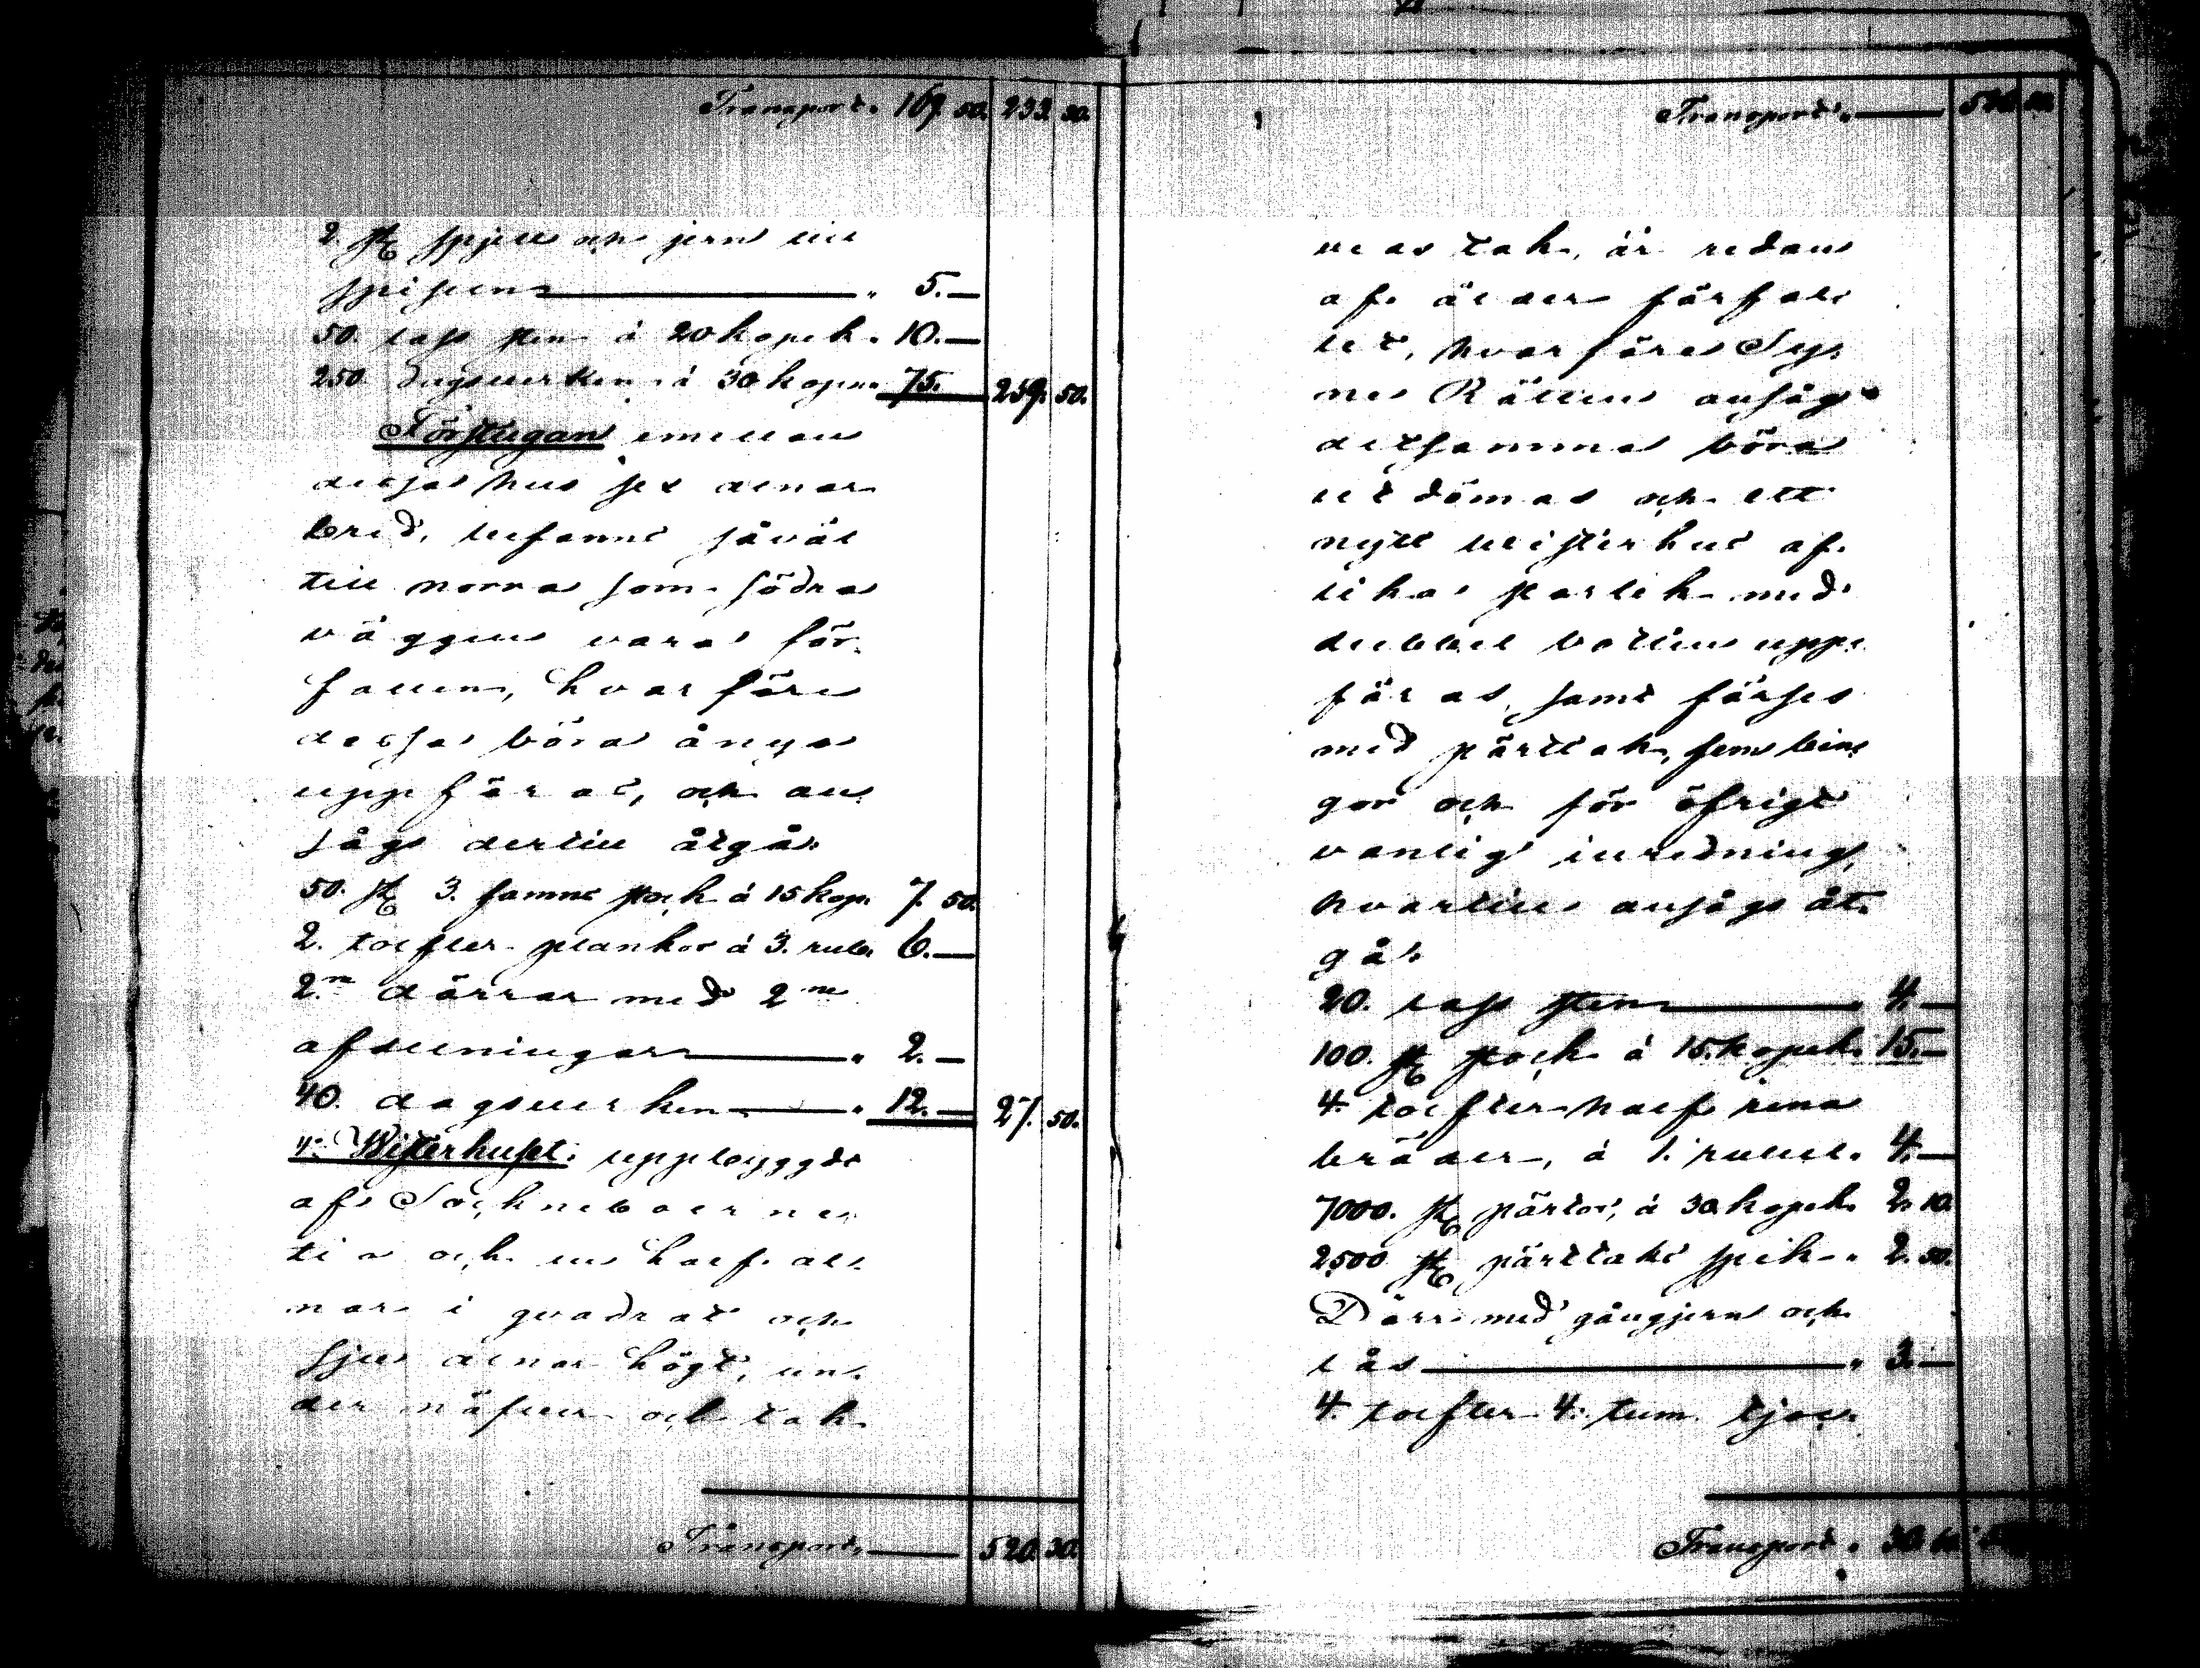 Transport. 167. 50. 233. 30.
2. st. spjell och jern till
spisen — " 5. —
50. lass sten á 20 kopek. 10. —
250. dagsverken á 30 kopek. 75. 259. 50.
Förstugan emellan
dessa hus sex alnar
bred, befanns såväl
till norra som södra
väggen vara för-
fallen, hvarföre
dessa böra ånyo
uppföras, och an-
sågs dertill åtgå:
50. st. 3. famns stock á 15 kop. 7. 50.
2. tolfter plankor á 3. rub. 6. —
2ne dörrar med 2ne
afdelningar — " 2. —
40. dagsverken — " 12. — 27. 50.
4o Wisterhuset: uppbyggdt
af Sockneboerne,
tio och en half al-
nar i qvadrat och
sju alnar högt, un-
der näfver och tak
Transport, — 520. 30.
Transport, — 520. 30.
ve as tak, är redan
af ålder förfal-
let, hvarföre Sy-
ne Rätten ansåg
detsamma böra
utdömas och ett
nytt visterhus af
lika storlek med
dubbel botten upp-
föras, samt förses
med pärttak, fem bin-
gar och för öfrigt
vanlig inredning,
hvartill ansågs åt-
gå:
20. lass sten — " 4. —
100. st. stock á 15. kopek. 15. —
4. tolfter half rena
bräder, á 1. rubel. 4. —
7000. st. pärtor, á 30. kopek. 2. 10.
2500 st. pärttaks spik — " 2. 50.
Dörr med gångjern och
lås — " 3. —
4. tolfter 4. tum tjoc-
Transport. 30. 60.